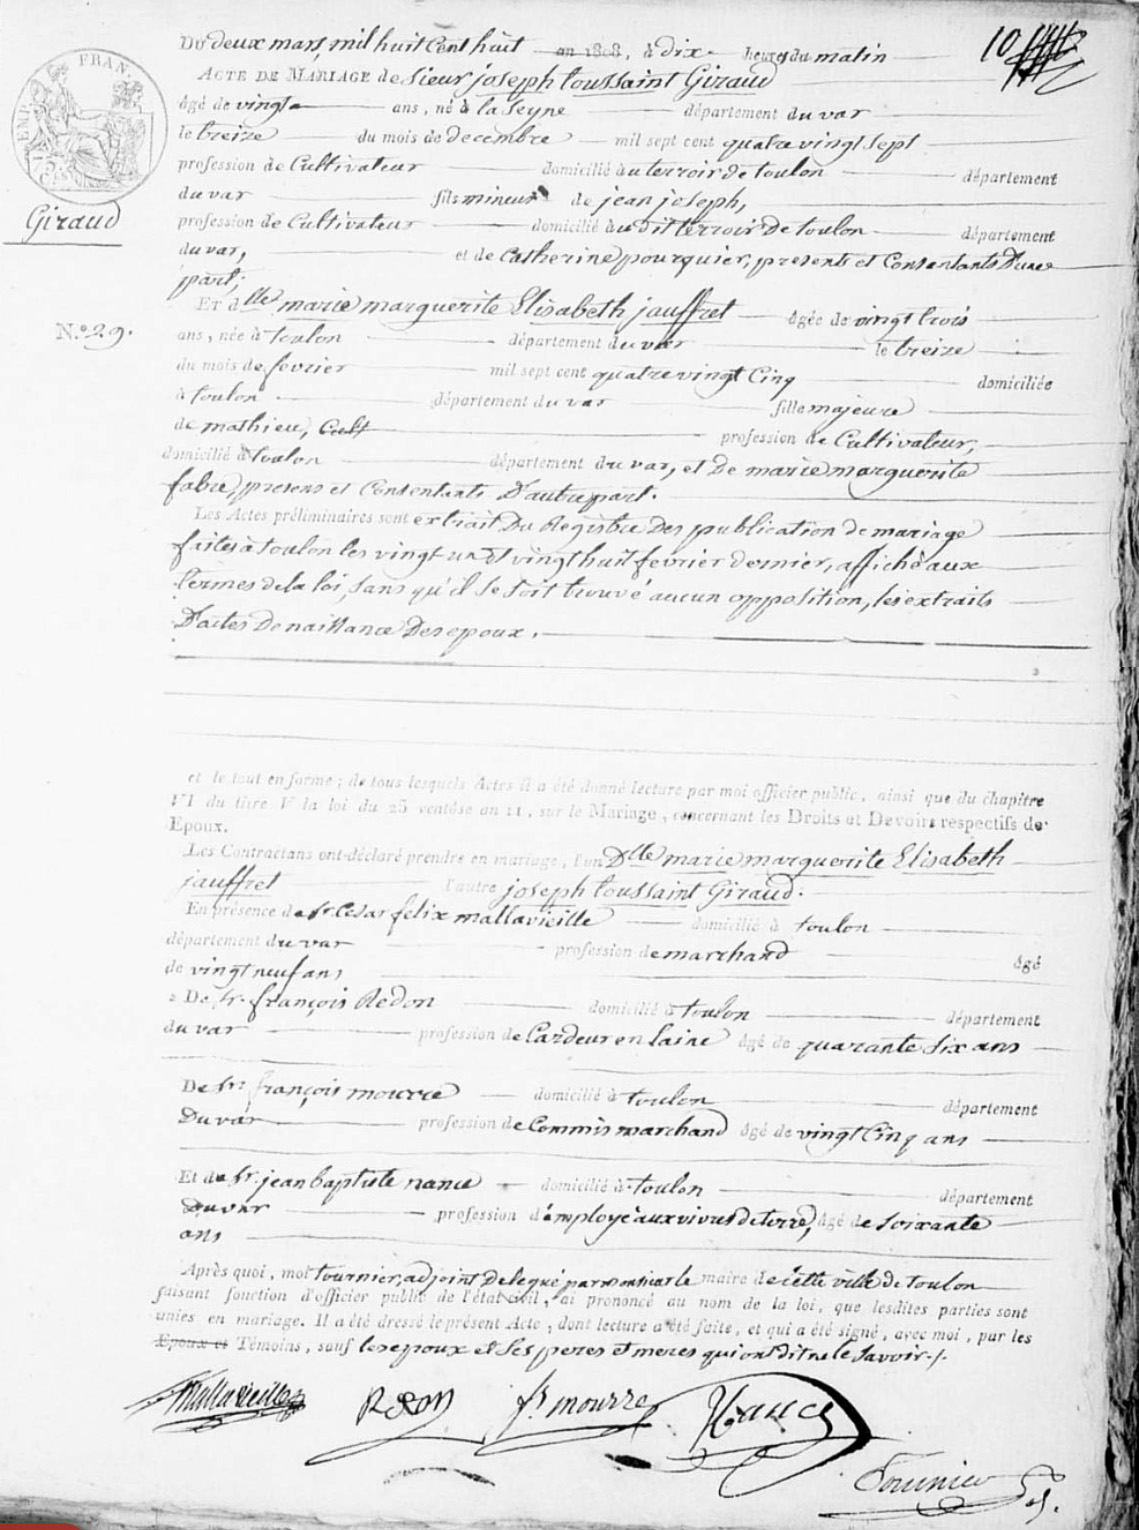 Du deux mars, mil huit Cent huit an 1808, à dix heures du matin
10
EMP. FRAN.
ACTE DE MARIAGE de Sieur joseph toussaint Giraud
âgé de vingt ans, né à la Seyne département du var
le treize du mois de decembre mil sept cent quatre vingt sept
profession de Cultivateur domicilié au terroir de toulon département
du var fils mineur de jean joseph,
Giraud
profession de Cultivateur domicilié au dit terroir de toulon département
du var, et de Catherine pourquier, presents et Consentants D'une
part;
Et dlle marie marguerite Elisabeth jauffret âgée de vingt trois
N.o 29.
ans, née à toulon département du var le treize
du mois de fevrier mil sept cent quatre vingt Cinq domiciliée
à toulon département du var fille majeure
de mathieu, Cult profession de Cultivateur,
domicilié à toulon département du var, et De marie marguerite
fabre, presens et Consentants D'autre part.
Les Actes préliminaires sont extrait Du Registre Des publication de mariage
faites à toulon les vingt un et vingt huit fevrier dernier, affiché aux
termes de la loi, sans qu'il se soit trouvé aucun opposition, les extraits
D'actes De naissance Des epoux.
et le tout en forme; de tous lesquels Actes il a été donné lecture par moi officier public, ainsi que du chapitre
VI du titre V la loi du 25 ventôse an 11, sur le Mariage, concernant les Droits et Devoirs respectifs de
Epoux.
Les Contractans ont déclaré prendre en mariage, l'un Dlle marie marguerite Elisabeth
jauffret l'autre joseph toussaint Giraud.
En présence de Sr. Cesar felix mallavieille domicilié à toulon
département du var profession de marchand âgé
de vingt neuf ans
De Sr. françois Redon domicilié à toulon département
du var profession de Cardeur en laine âgé de quarante six ans
De Sr. françois mourre domicilié à toulon département
Du var profession de Commis marchand âgé de vingt Cinq ans
Et de Sr. jean baptiste nance domicilié à toulon département
Du var profession d'employé aux vivres de terre, âgé de soixante
ans
Après quoi, moi tournier, adjoint Delegué par monsieur le maire de cette ville de toulon
faisant fonction d'officier public de l'état civil, ai prononcé au nom de la loi, que lesdites parties sont
unies en mariage. Il a été dressé le présent Acte, dont lecture a été faite, et qui a été signé, avec moi, par les
Epoux et Témoins, sauf les epoux et Ses peres et meres qui ont dit ne le Savoir./.
Mallavieille Redon fs mourre Nance
Tournier